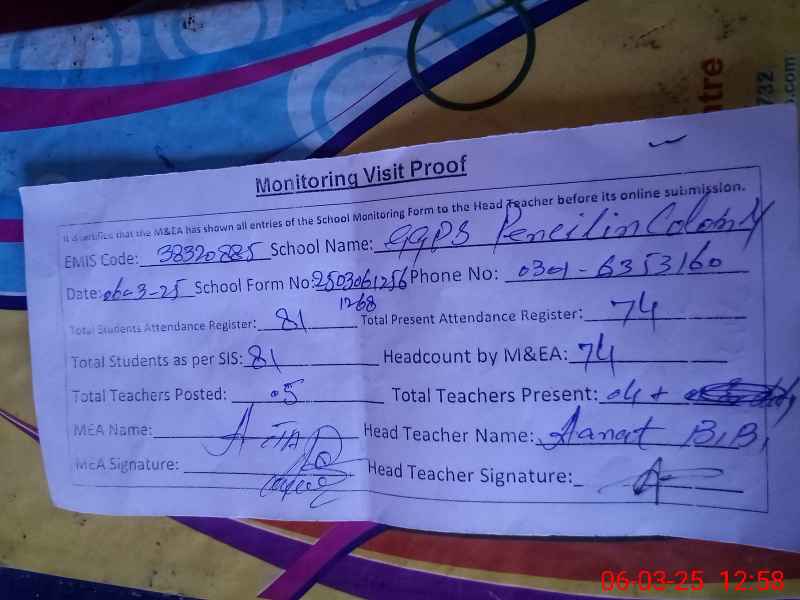 ntre
732
o.com
Monitoring Visit Proof
It certifies that the M&EA has shown all entries of the School Monitoring Form to the Head Teacher before its online submission.
EMIS Code: 38320885 School Name: GGPS Pencilin Colony
Date: 06-03-25 School Form No: 2503061256 Phone No: 0301-6353160
1268
Total Students Attendance Register: 81 Total Present Attendance Register: 74
Total Students as per SIS: 81 Headcount by M&EA: 74
Total Teachers Posted: 05 Total Teachers Present: 04 +
MEA Name: Head Teacher Name: Aanat BiBi
MEA Signature: Head Teacher Signature:
06-03-25 12:58